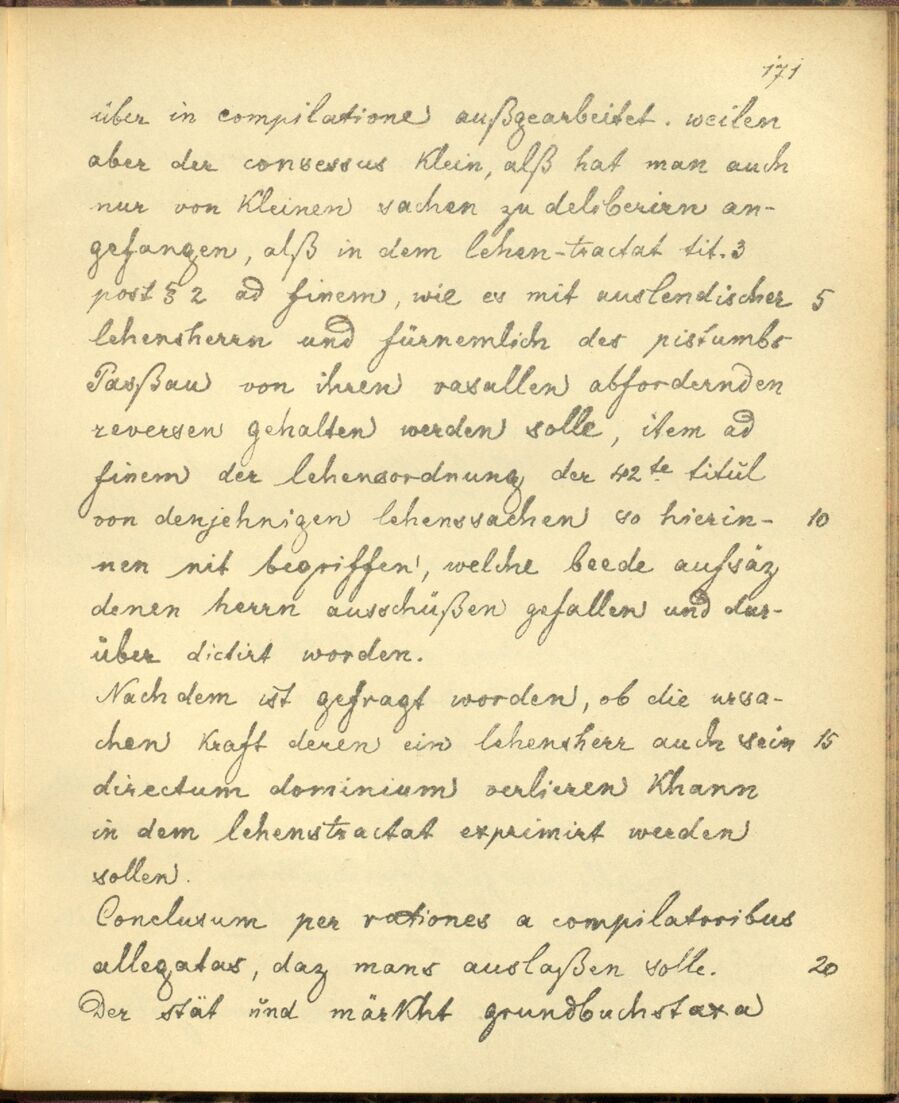 171
über in compilatione außgearbeitet. weilen
aber der consessus klein, alß hat man auch
nur von kleinen sachen zu deliberirn an-
gefangen, alß in dem lehen-tractat tit. 3
post § 2 ad finem, wie es mit auslendischer 5
lehensherrn und fürnemlich des pistumbs
Paßau von ihren vasallen abfordernden
reversen gehalten werden solle, item ad
finem der lehensordnung der 42te titul
von denjehnigen lehenssachen so hierin- 10
nen nit begriffen, welche beede aufsäz
denen herrn ausschüßen gefallen und dar-
über dictirt worden.
Nachdem ist gefragt worden, ob die ursa-
chen kraft deren ein lehensherr auch sein 15
directum dominium verlieren khann
in dem lehenstractat exprimirt werden
sollen.
Conclusum per rationes a compilatoribus
allegatas, daz mans auslaßen solle. 20
Der stät und märkht grundbuchstaxa